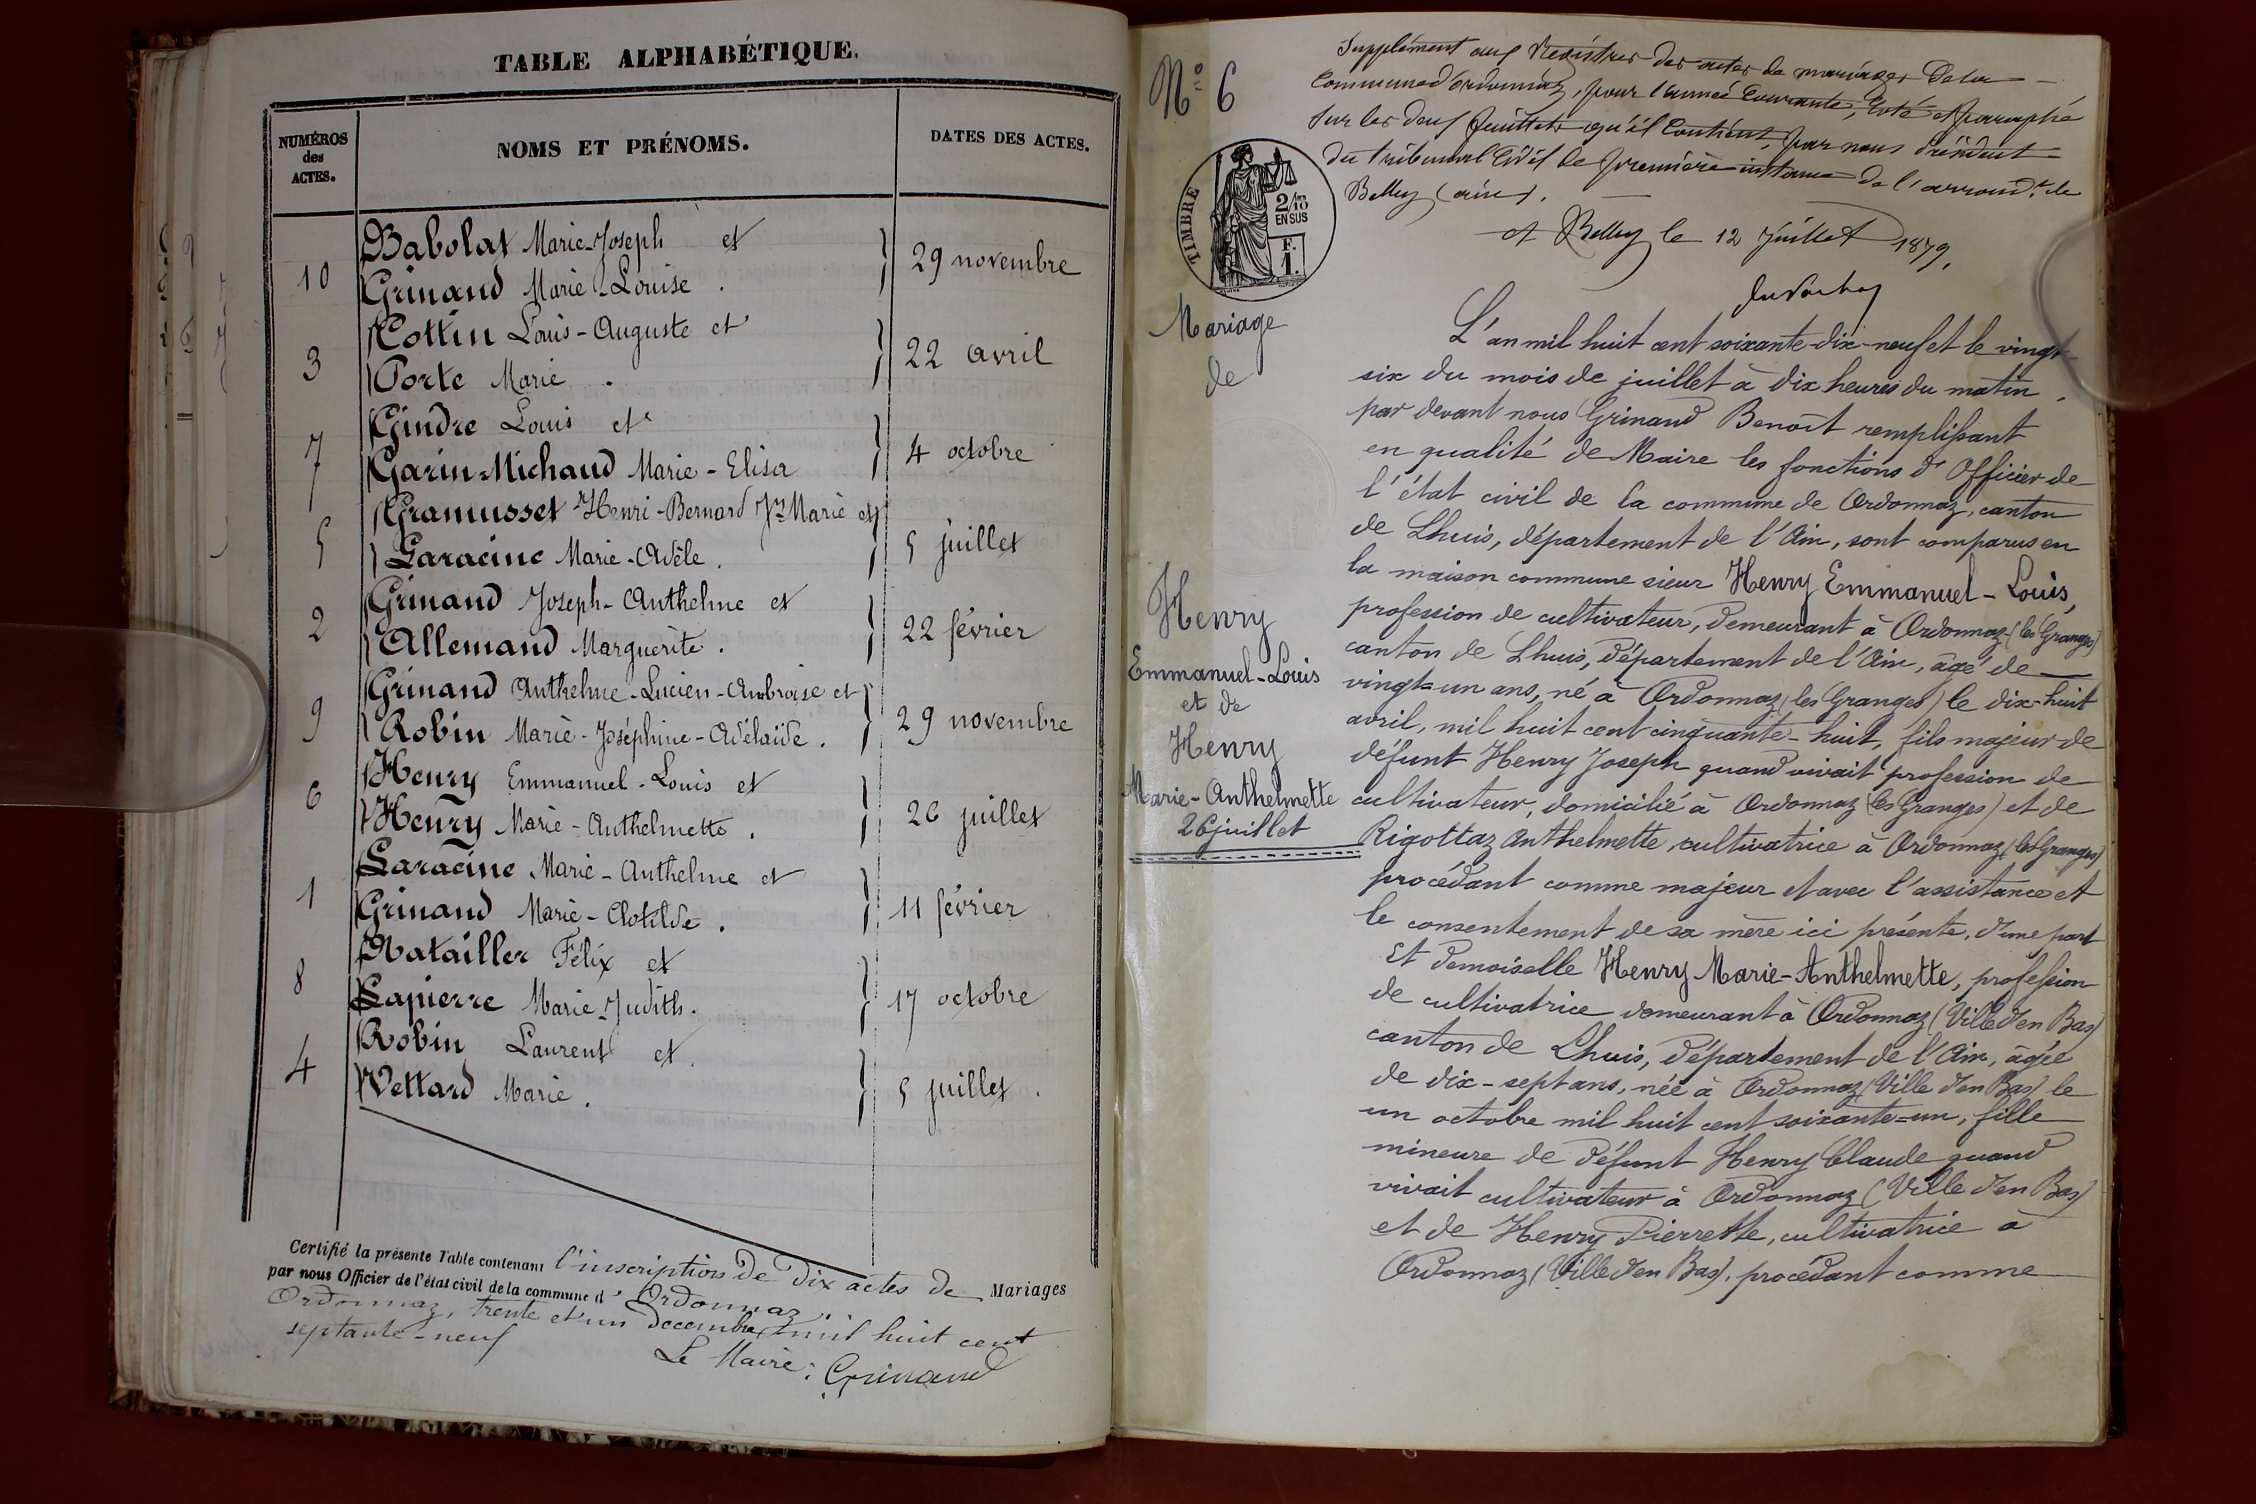 TABLE ALPHABÉTIQUE.
NUMÉROS
des
ACTES.
NOMS ET PRÉNOMS.
DATES DES ACTES.
10
Babolat Marie-Joseph et
Grinand Marie-Louise.
29 novembre
3
Cottin Louis-Auguste et
Porte Marie.
22 avril
7
Gindre Louis et
Garin-Michaud Marie-Elisa
4 octobre
5
Gramusset Henri-Bernard Jn Marie et
Laracine Marie-Adèle.
5 juillet
2
Grinand Joseph-Anthelme et
Allemand Marguerite.
22 février
9
Grinand Anthelme-Lucien-Ambroise et
Robin Marie-Joséphine-Adélaïde.
29 novembre
6
Henry Emmanuel-Louis et
Henry Marie-Anthelmette.
26 juillet
1
Laracine Marie-Anthelme et
Grinand Marie-Clotilde.
11 février
8
Natailler Félix et
Lapierre Marie-Judith.
17 octobre
4
Robin Laurent et
Vettard Marie.
5 juillet.
Certifié la présente Table contenant l'inscription de dix actes de Mariages
par nous Officier de l'état civil de la commune d' Ordonnaz.
Ordonnaz, trente et un decembre mil huit cent
septante-neuf
Le Maire: Grinand
No 6
Supplément aux Registres des actes de mariages de la
Commune d'ordonnaz, pour l'année Courante, Coté et paraphé
sur les deux feuillets qu'il Contient, par nous Président
du tribunal Civil de première instance de l'arrondt. de
Belley (ain).
A Belley le 12 juillet 1879.
TIMBRE
2/10
EN SUS
F.
1.
Mariage
de
Henry
Emmanuel-Louis
et de
Henry
Marie-Anthelmette
26 juillet
L'an mil huit cent soixante-dix-neuf et le vingt-
six du mois de juillet à dix heures du matin,
par devant nous Grinand Benoît remplissant
en qualité de Maire les fonctions d'Officier de
l'état civil de la commune de Ordonnaz, canton
de Lhuis, département de l'Ain, sont comparus en
la maison commune sieur Henry Emmanuel-Louis,
profession de cultivateur, demeurant à Ordonnaz (les Granges)
canton de Lhuis, département de l'Ain, âgé de
vingt-un ans, né à Ordonnaz (les Granges) le dix-huit
avril, mil huit cent cinquante-huit, fils majeur de
défunt Henry Joseph quand vivait profession de
cultivateur, domicilié à Ordonnaz (les Granges) et de
Rigottaz Anthelmette, cultivatrice à Ordonnaz (les Granges)
procédant comme majeur et avec l'assistance et
le consentement de sa mère ici présente, d'une part
Et demoiselle Henry Marie-Anthelmette, profession
de cultivatrice demeurant à Ordonnaz (Ville d'en Bas)
canton de Lhuis, département de l'Ain, âgée
de dix-sept ans, née à Ordonnaz (Ville d'en Bas) le
un octobre mil huit cent soixante-un, fille
mineure de défunt Henry Claude quand
vivait cultivateur à Ordonnaz (Ville d'en Bas)
et de Henry Pierrette, cultivatrice à
Ordonnaz (Ville d'en Bas), procédant comme